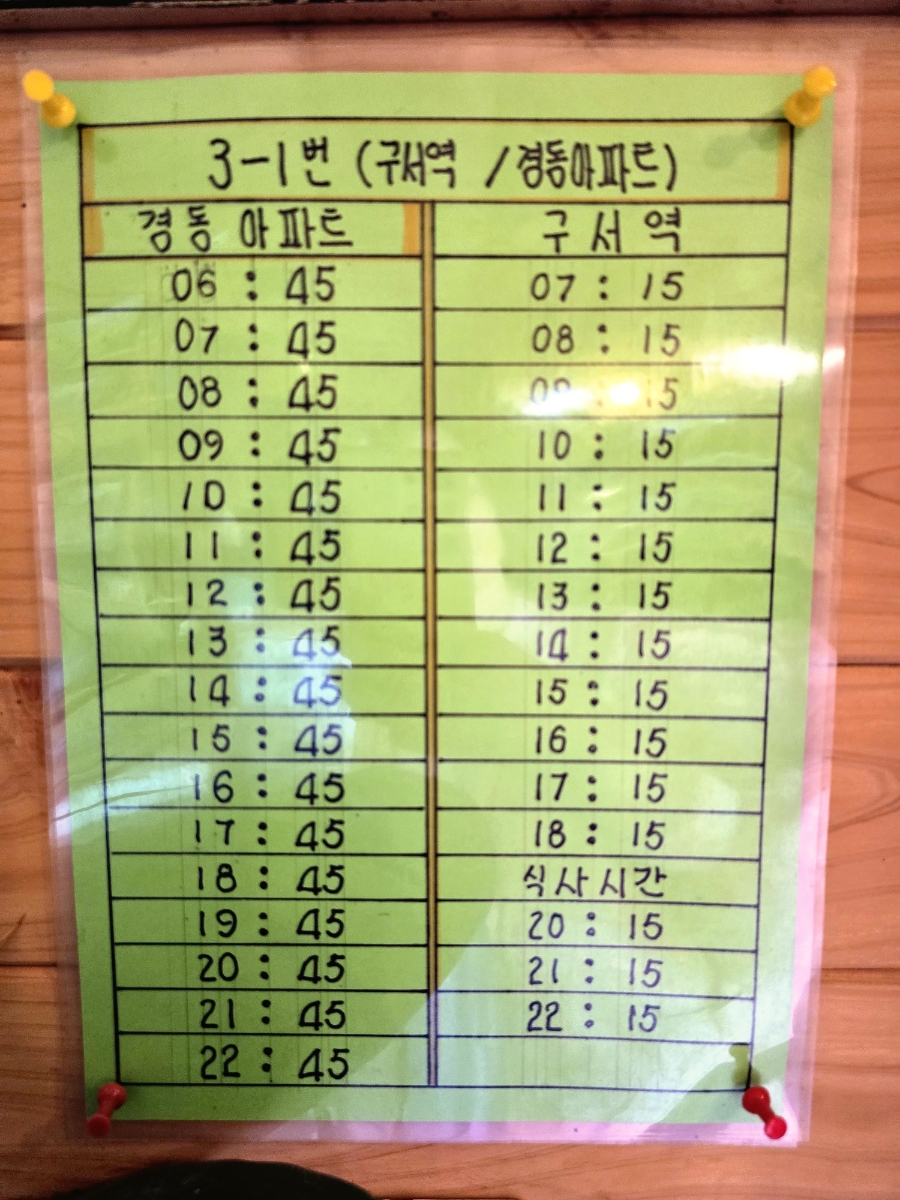 3-1번 (구서역 / 경동아파트)
경동아파트 구서역
06 : 45 07 : 15
07 : 45 08 : 15
08 : 45 09 : 15
09 : 45 10 : 15
10 : 45 11 : 15
11 : 45 12 : 15
12 : 45 13 : 15
13 : 45 14 : 15
14 : 45 15 : 15
15 : 45 16 : 15
16 : 45 17 : 15
17 : 45 18 : 15
18 : 45 식사시간
19 : 45 20 : 15
20 : 45 21 : 15
21 : 45 22 : 15
22 : 45